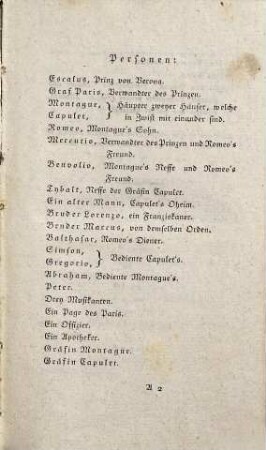 Personen:
Escalus, Prinz von Verona.
Graf Paris, Verwandter des Prinzen.
Montague, } Häupter zweyer Häuser, welche
Capulet, } in Zwist mit einander sind.
Romeo, Montague's Sohn.
Mercutio, Verwandter des Prinzen und Romeo's
Freund.
Benvolio, Montague's Neffe und Romeo's
Freund.
Tybalt, Neffe der Gräfin Capulet.
Ein alter Mann, Capulet's Oheim.
Bruder Lorenzo, ein Franziskaner.
Bruder Marcus, von demselben Orden.
Balthasar, Romeo's Diener.
Simson, } Bediente Capulet's.
Gregorio, }
Abraham, Bediente Montague's.
Peter.
Drey Musikanten.
Ein Page des Paris.
Ein Offizier.
Ein Apotheker.
Gräfin Montague.
Gräfin Capulet.
A 2